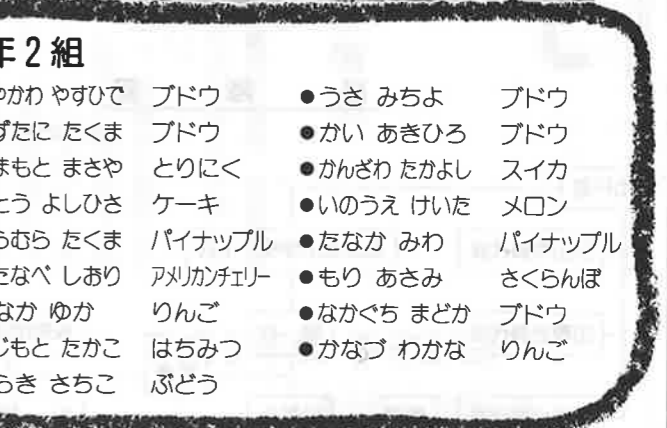 年2組
やかわ やすひで ブドウ
ずたに たくま ブドウ
まもと まさや とりにく
とう よしひさ ケーキ
らむら たくま パイナップル
たなべ しおり アメリカンチェリー
なか ゆか りんご
じもと たかこ はちみつ
らき さちこ ぶどう
●うさ みちよ ブドウ
●かい あきひろ ブドウ
●かんざわ たかよし スイカ
●いのうえ けいた メロン
●たなか みわ パイナップル
●もり あさみ さくらんぼ
●なかぐち まどか ブドウ
●かなづ わかな りんご